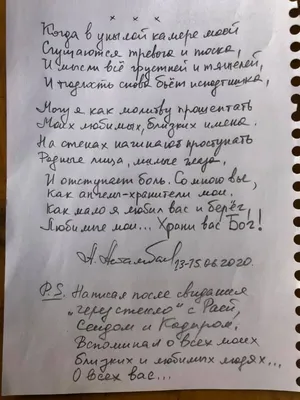 × × ×
Когда в унылой камере моей
Сгущаются тревога и тоска,
И мысли всё грустней и тяжелей,
И подлость снова бьёт исподтишка,
Могу я как молитву прошептать
Моих любимых, близких имена.
На стенах начинают проступать
Родные лица, милые глаза,
И отступает боль. Со мною вы,
Как ангелы-хранители мои.
Как мало я любил вас и берёг,
Любимые мои... Храни вас Бог!
А. Атамбаев 13-15.06.2020.
P.S. Написал после свидания
"через стекло" с Раей,
Сеидом и Кадыром.
Вспоминал о всех моих
близких и любимых людях...
О всех вас...